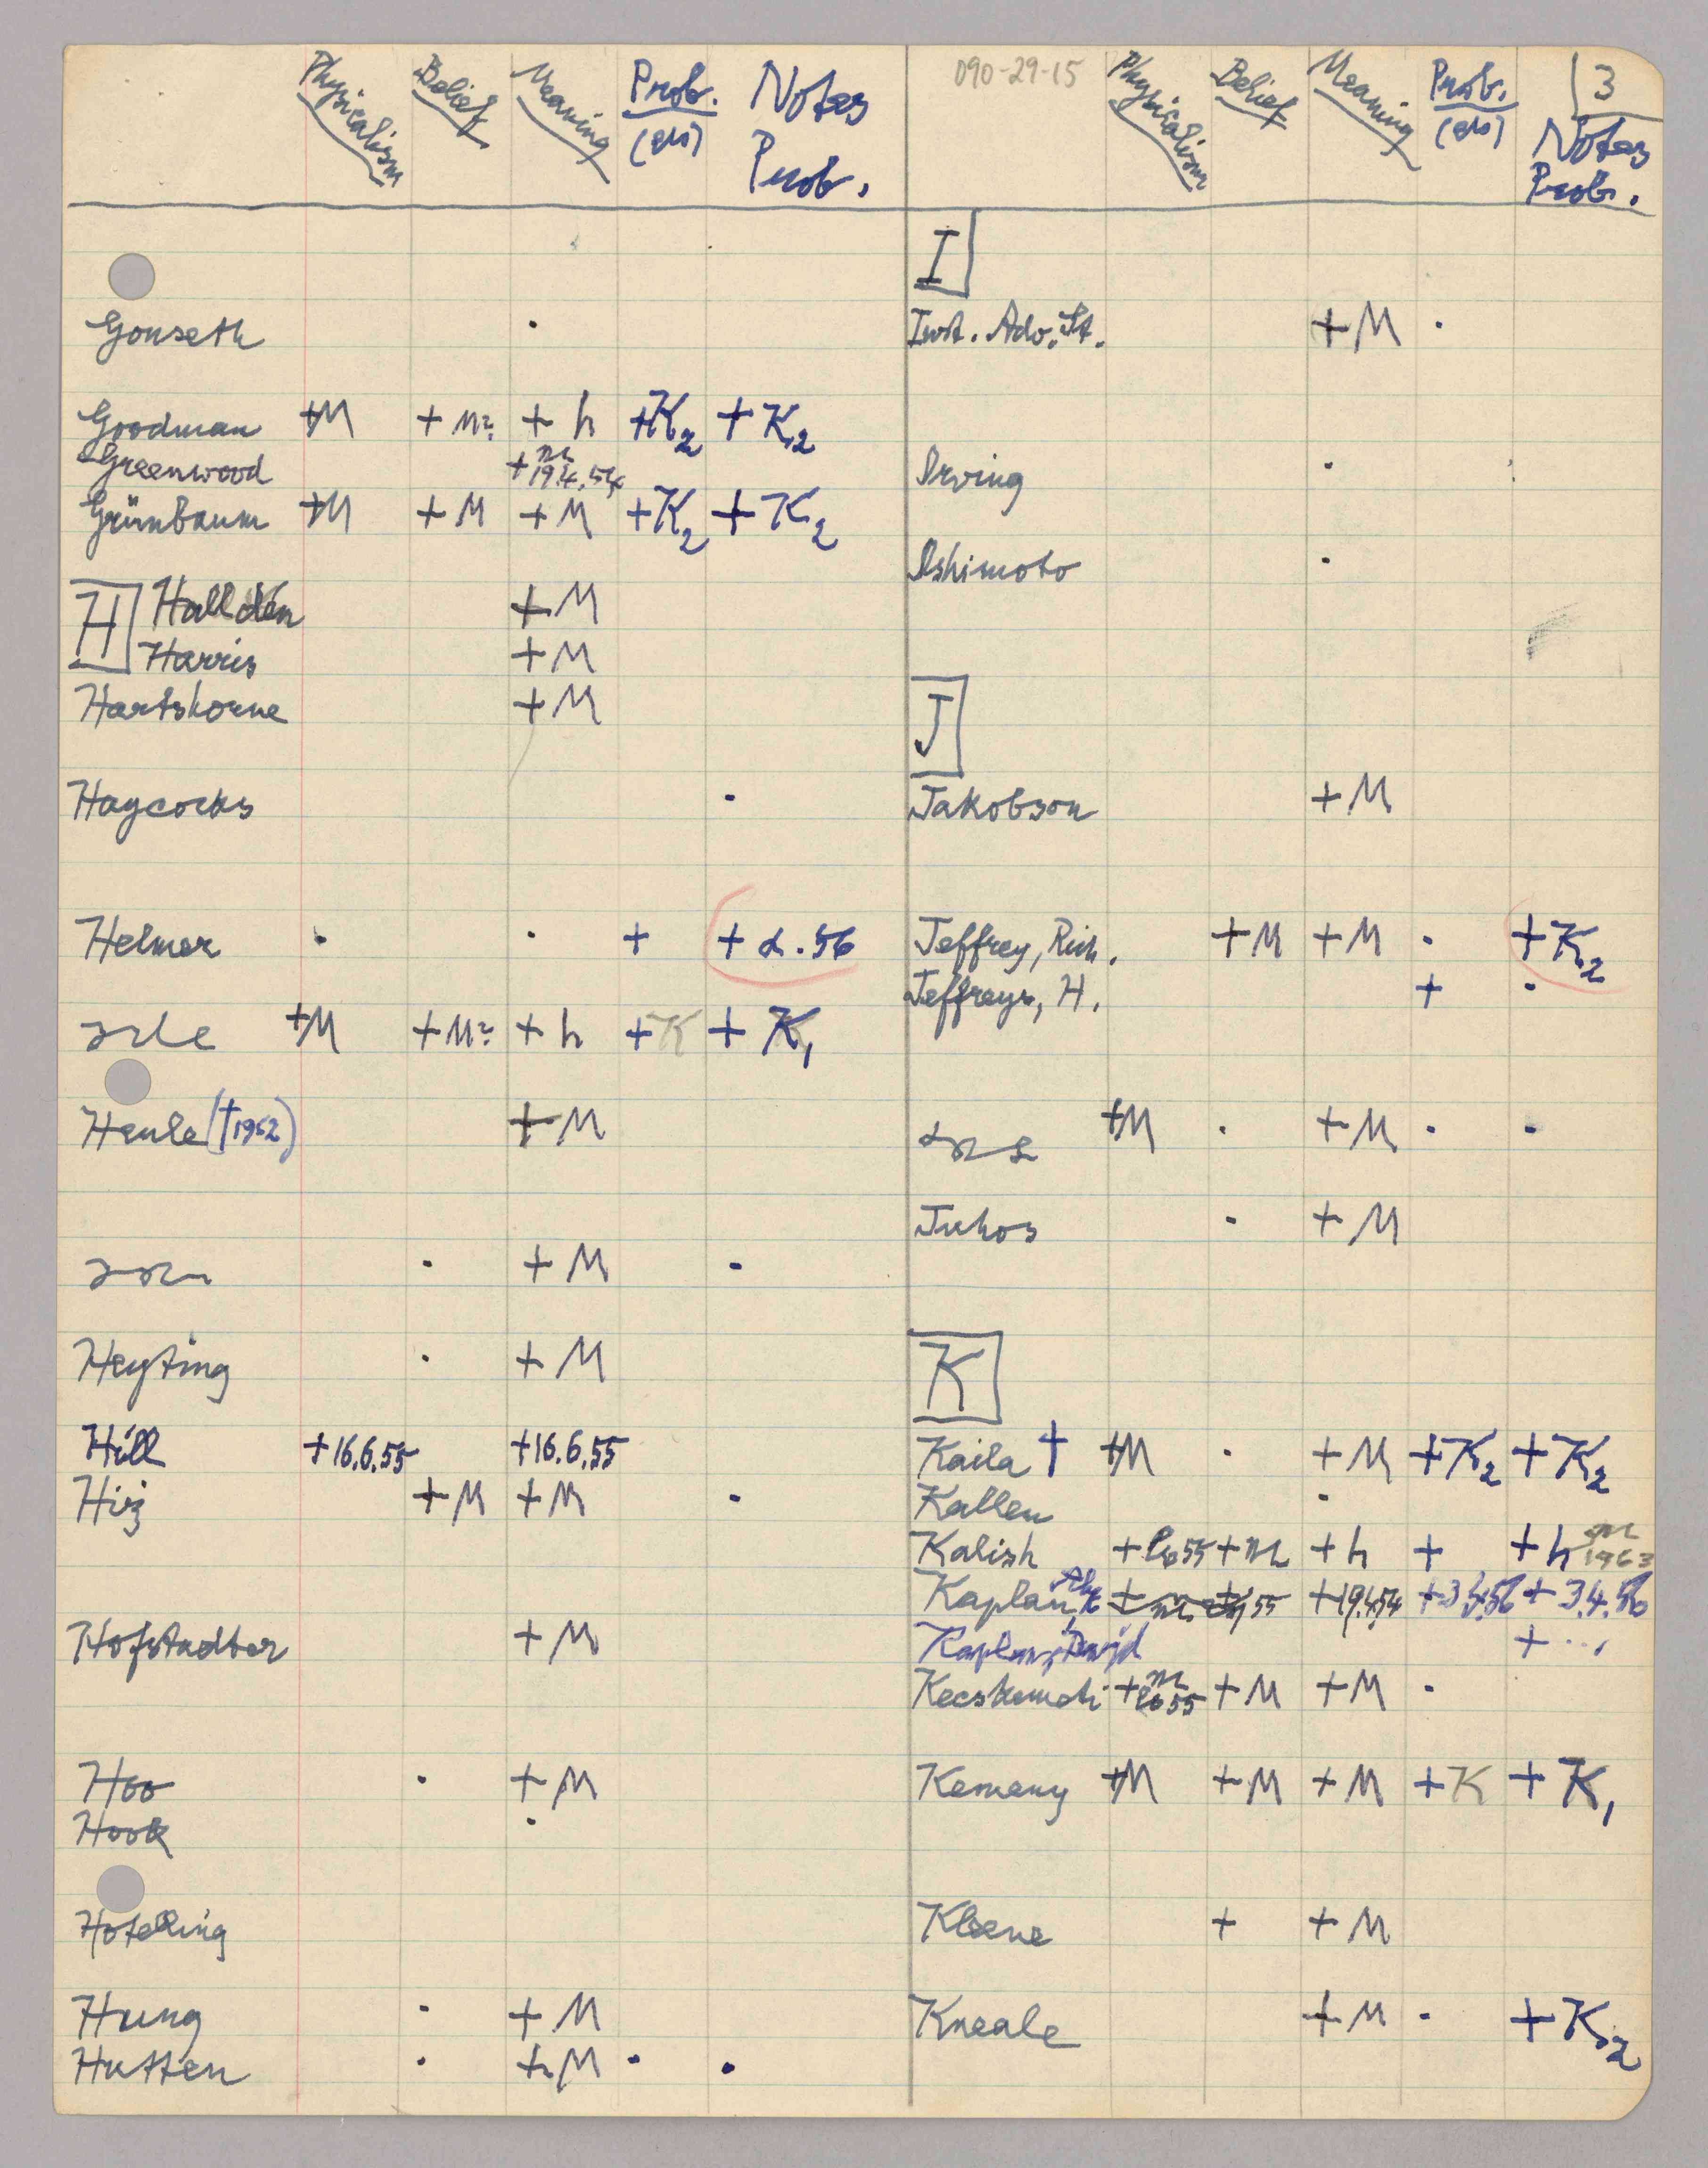 Physicalism Belief Meaning Prob. Notes
Prob.
Gonseth .
Goodman +M + M? + h +K2 + K2
Greenwood + 19.4.54
Grünbaum +M + M + M +K2 + K2
H Halldén + M
Harris + M
Hartshorne + M
Haycocks .
Helmer . . + + 56
+M + M? + h + K + K1
Henle († 1962) + M
. + M .
Heyting . + M
Hill + 16.6.55 + 16.6.55
Hiż + M + M .
Hofstadter + M
Hoo . + M
Hook .
Hotelling
Hung . + M
Hutten . + M . .
090-29-15 Physicalism Belief Meaning Prob. 3
Notes
Prob.
I
Inst. Adv. St. + M .
Irving .
Ishimoto .
J
Jakobson + M
Jeffrey, Rich. + M + M . + K2
Jeffreys, H. + .
+M . + M . .
Juhos . + M
K
Kaila † +M . + M + K2 + K2
Kallen .
Kalish + 55 + + h + + h 1963
Kaplan, + + 55 + 19.4.54 + 3.4.56 + 3.4.56
Kaplan, David + ...
Kecskemeti + 55 + M + M .
Kemeny +M + M + M + K + K1
Kleene + + M
Kneale + M . + K2